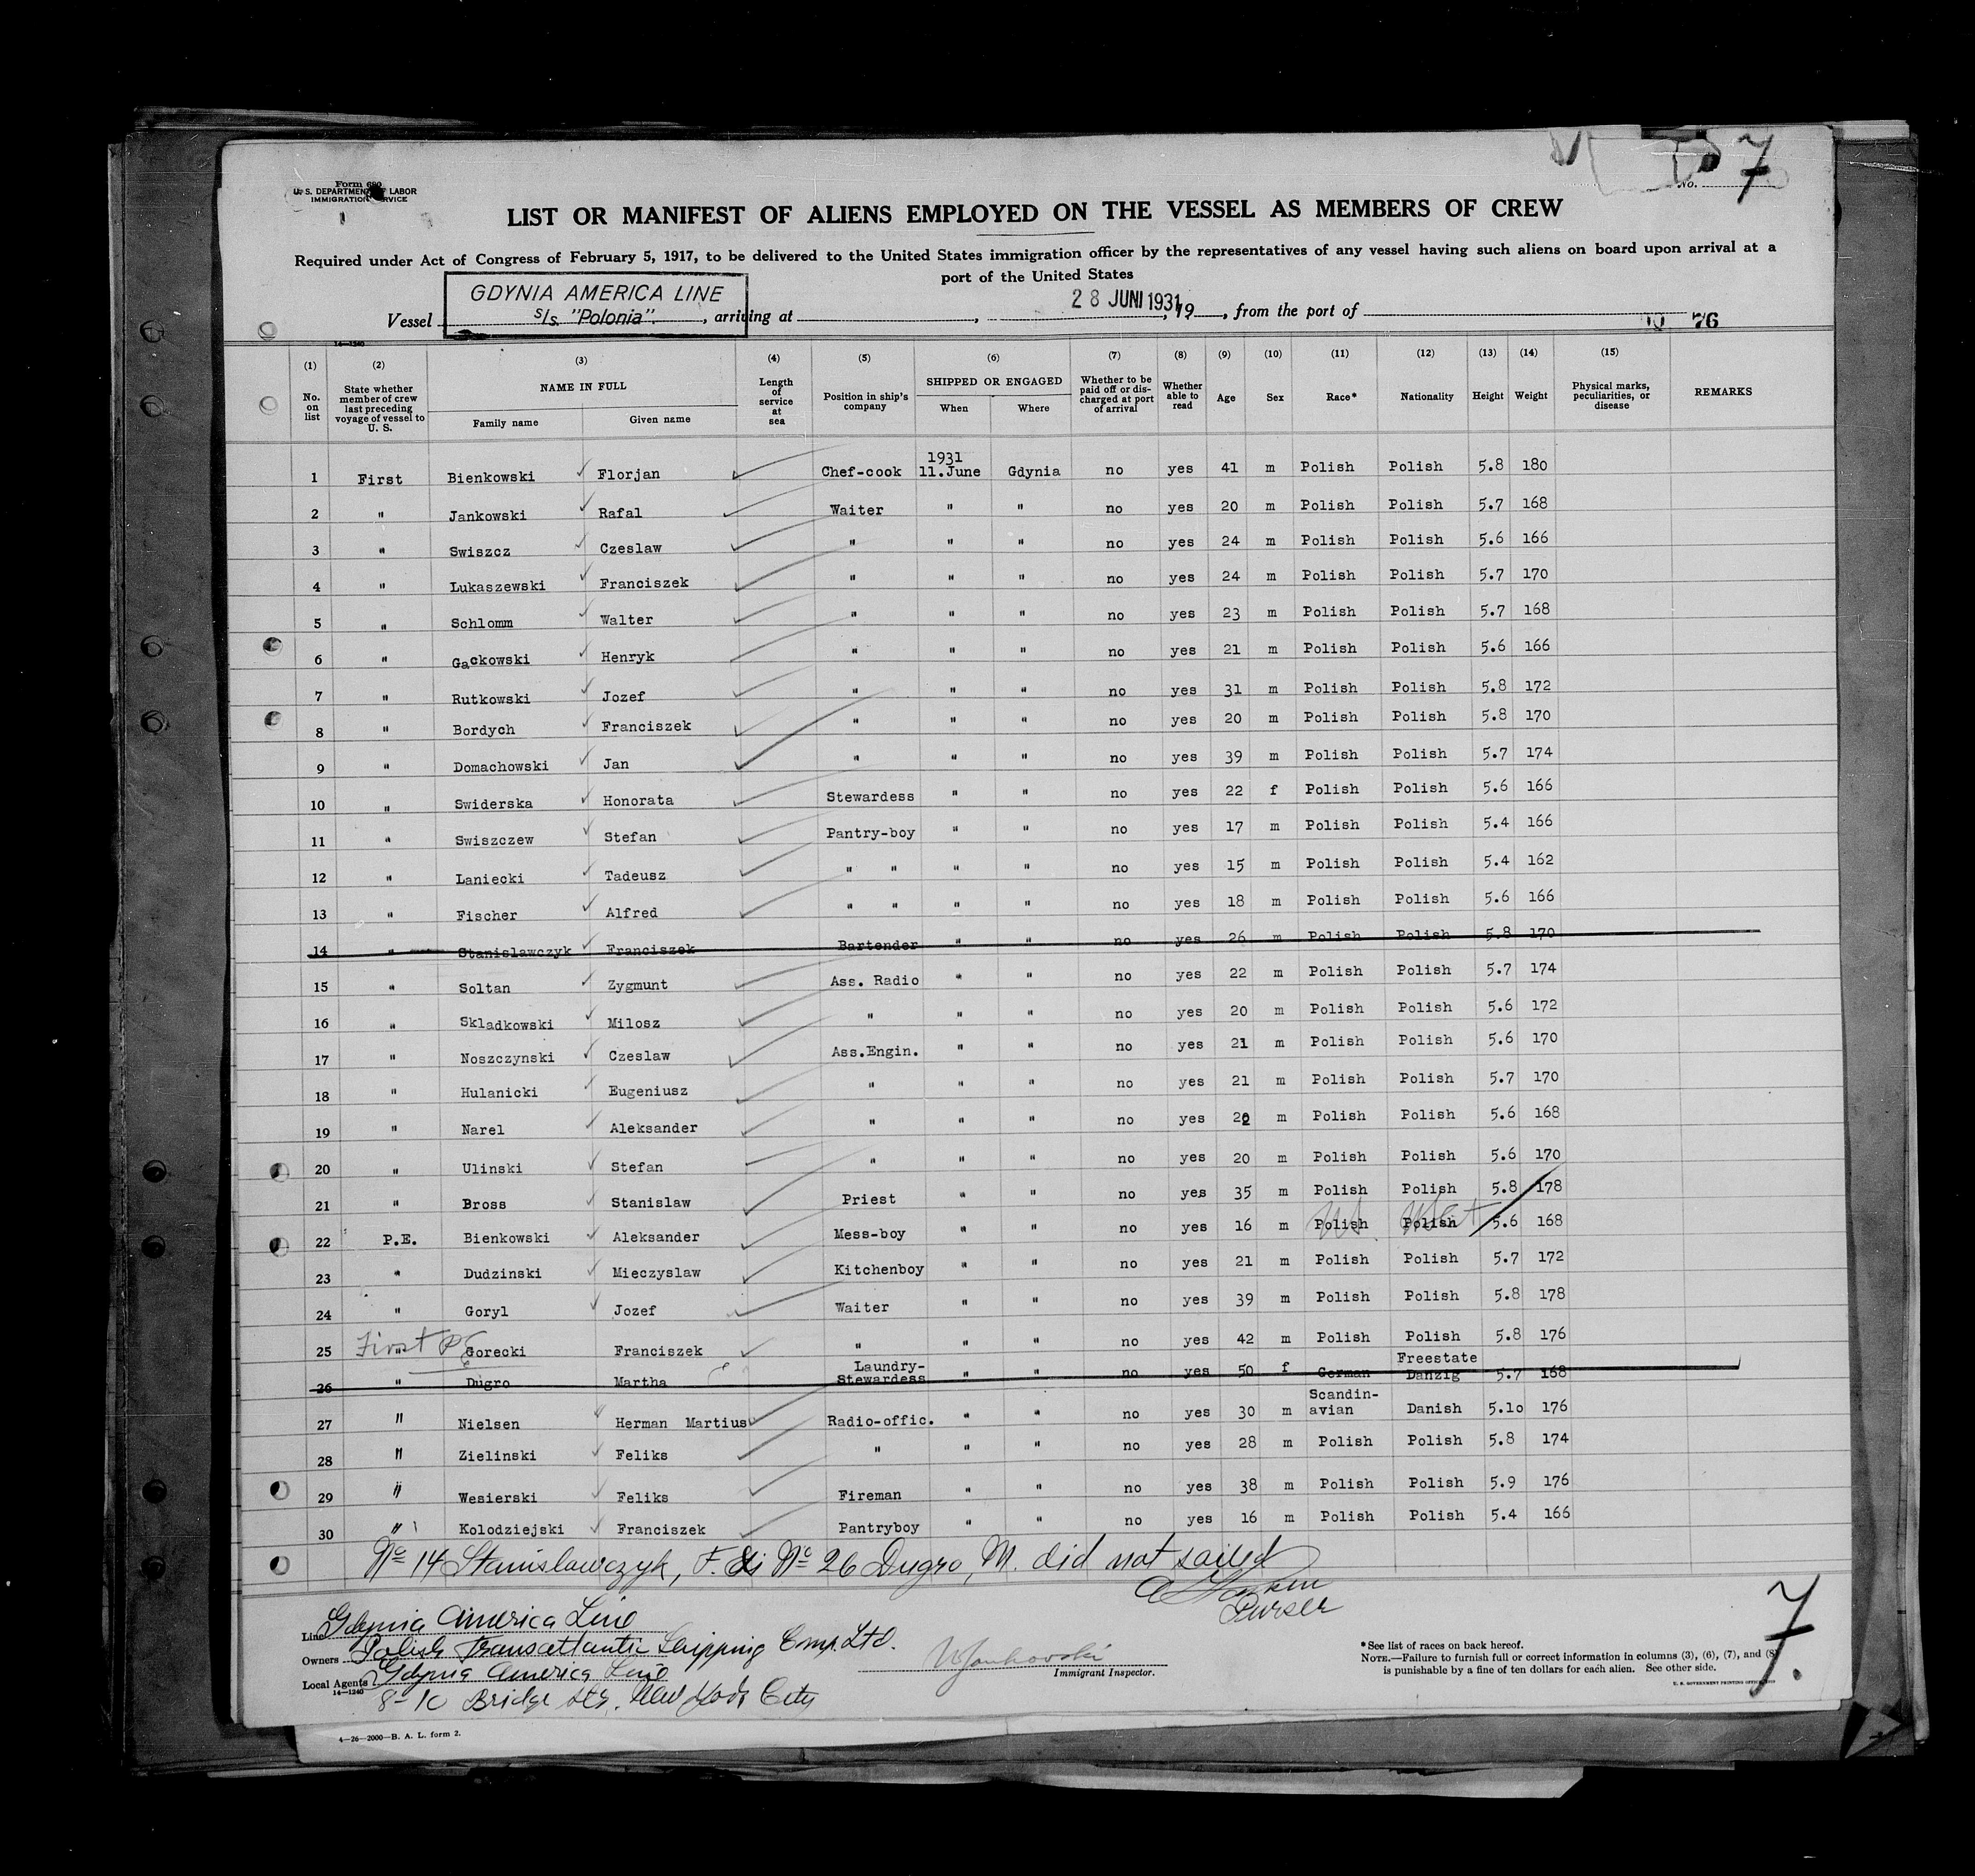 7
Form 680
U. S. DEPARTMENT OF LABOR
IMMIGRATION SERVICE
No.
LIST OR MANIFEST OF ALIENS EMPLOYED ON THE VESSEL AS MEMBERS OF CREW
Required under Act of Congress of February 5, 1917, to be delivered to the United States immigration officer by the representatives of any vessel having such aliens on board upon arrival at a
port of the United States
GDYNIA AMERICA LINE
Vessel s/s. "Polonia". , arriving at , 28 JUNI 1931, 19 , from the port of
76
14—1240
(1) (2) (3) (4) (5) (6) (7) (8) (9) (10) (11) (12) (13) (14) (15)
No. on list State whether member of crew last preceding voyage of vessel to U. S. NAME IN FULL Family name Given name Length of service at sea Position in ship's company SHIPPED OR ENGAGED When Where Whether to be paid off or discharged at port of arrival Whether able to read Age Sex Race* Nationality Height Weight Physical marks, peculiarities, or disease REMARKS
1 First Bienkowski Florjan Chef-cook 1931 11.June Gdynia no yes 41 m Polish Polish 5.8 180
2 " Jankowski Rafal Waiter " " no yes 20 m Polish Polish 5.7 168
3 " Swiszcz Czeslaw " " " no yes 24 m Polish Polish 5.6 166
4 " Lukaszewski Franciszek " " " no yes 24 m Polish Polish 5.7 170
5 " Schlomm Walter " " " no yes 23 m Polish Polish 5.7 168
6 " Gackowski Henryk " " " no yes 21 m Polish Polish 5.6 166
7 " Rutkowski Jozef " " " no yes 31 m Polish Polish 5.8 172
8 " Bordych Franciszek " " " no yes 20 m Polish Polish 5.8 170
9 " Domachowski Jan " " " no yes 39 m Polish Polish 5.7 174
10 " Swiderska Honorata Stewardess " " no yes 22 f Polish Polish 5.6 166
11 " Swiszczew Stefan Pantry-boy " " no yes 17 m Polish Polish 5.4 166
12 " Laniecki Tadeusz " " " " no yes 15 m Polish Polish 5.4 162
13 " Fischer Alfred " " " " no yes 18 m Polish Polish 5.6 166
14 " Stanislawczyk Franciszek Bartender " " no yes 26 m Polish Polish 5.8 170
15 " Soltan Zygmunt Ass. Radio " " no yes 22 m Polish Polish 5.7 174
16 " Skladkowski Milosz " " " no yes 20 m Polish Polish 5.6 172
17 " Noszczynski Czeslaw Ass.Engin. " " no yes 21 m Polish Polish 5.6 170
18 " Hulanicki Eugeniusz " " " no yes 21 m Polish Polish 5.7 170
19 " Narel Aleksander " " " no yes m Polish Polish 5.6 168
20 " Ulinski Stefan " " " no yes 20 m Polish Polish 5.6 170
21 " Bross Stanislaw Priest " " no yes 35 m Polish Polish 5.8 178
22 P.E. Bienkowski Aleksander Mess-boy " " no yes 16 m Polish Polish 5.6 168
23 " Dudzinski Mieczyslaw Kitchenboy " " no yes 21 m Polish Polish 5.7 172
24 " Goryl Jozef Waiter " " no yes 39 m Polish Polish 5.8 178
25 First PE " Gorecki Franciszek " " " no yes 42 m Polish Polish 5.8 176
26 " Dugro Martha Laundry-Stewardess " " no yes 50 f German Freestate Danzig 5.7 168
27 " Nielsen Herman Martius Radio-offic. " " no yes 30 m Scandin-avian Danish 5.10 176
28 " Zielinski Feliks " " " no yes 28 m Polish Polish 5.8 174
29 " Wesierski Feliks Fireman " " no yes 38 m Polish Polish 5.9 176
30 " Kolodziejski Franciszek Pantryboy " " no yes 16 m Polish Polish 5.4 166
No 14 Stanislawczyk, F. & No 26 Dugro, M. did not sailed
Purser
Line Gdynia America Line
Owners Polish Transatlantic Shipping Comp. Ltd.
Local Agents Gdynia America Line
14—1240
8-10 Bridge Str. New York City
W Jankovski
Immigrant Inspector.
*See list of races on back hereof.
NOTE.—Failure to furnish full or correct information in columns (3), (6), (7), and (8)
is punishable by a fine of ten dollars for each alien. See other side.
U. S. GOVERNMENT PRINTING OFFICE
7.
4—26—2000—B. A. L. form 2.